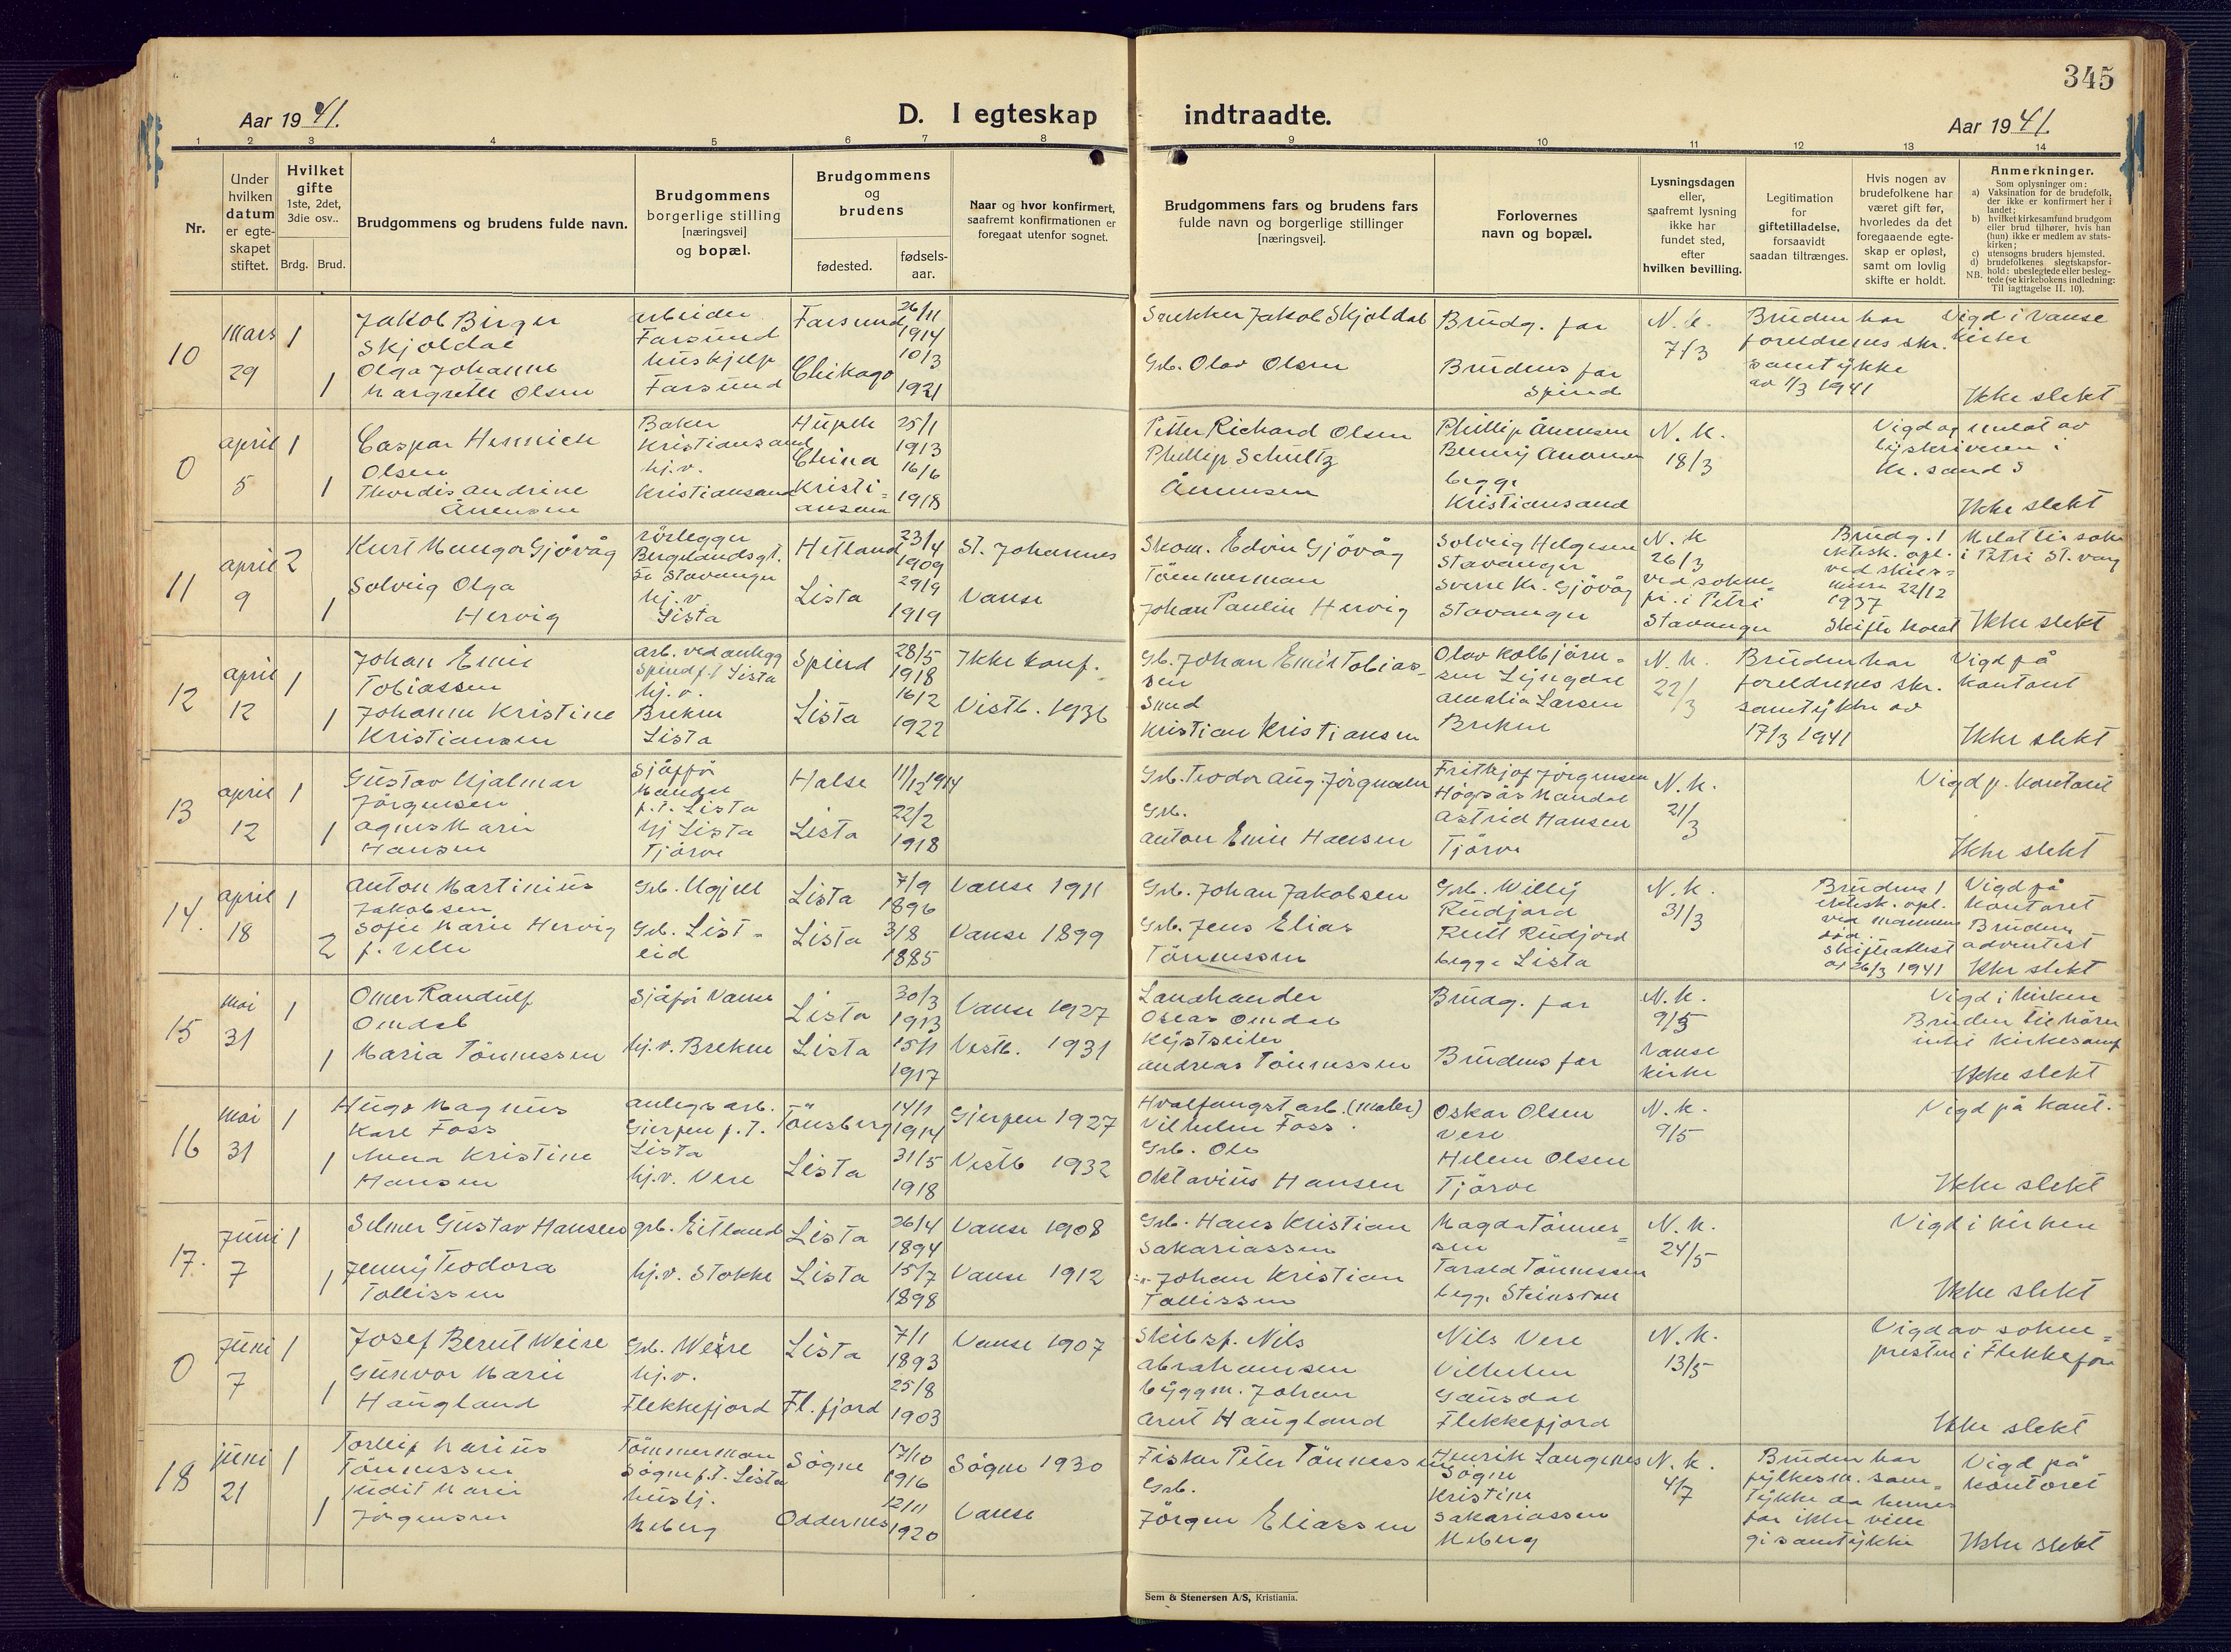 345
Aar 1941.
D. I egteskap indtraadte.
Aar 1941.
1 2 3 4 5 6 7 8 9 10 11 12 13 14
Nr.
Under hvilken datum er egte-skapet stiftet.
Hvilket gifte 1ste, 2det, 3die osv..
Brdg. Brud.
Brudgommens og brudens fulde navn.
Brudgommens borgerlige stilling [næringsvei] og bopæl.
Brudgommens og brudens
fødested. fødsels-aar.
Naar og hvor konfirmert, saafremt konfirmationen er foregaat utenfor sognet.
Brudgommens fars og brudens fars fulde navn og borgerlige stillinger [næringsvei].
Forlovernes navn og bopæl.
Lysningsdagen eller, saafremt lysning ikke har fundet sted, efter hvilken bevilling.
Legitimation for giftetilladelse, forsaavidt saadan tiltrænges.
Hvis nogen av brudefolkene har været gift før, hvorledes da det foregaaende egte-skap er opløst, samt om lovlig skifte er holdt.
Anmerkninger.
Som oplysninger om:
a) Vaksination for de brudefolk, der ikke er konfirmert her i landet;
b) hvilket kirkesamfund brudgom eller brud tilhører, hvis han (hun) ikke er medlem av stats-kirken;
c) utensogns bruders hjemsted.
d) brudefolkenes slegtskapsfor-hold: ubeslegtede eller besleg-tede (se kirkebokens indledning: Til iagttagelse II. 10).
NB.
10
mars 29
1
1
Jakob Birger
Skjoldal
Olga Johanne
Margrethe Olsen
arbeider
Farsund
hushjelp
Farsund
Farsund
Chikago
26/11
1914
10/3
1921
Jakob Skjoldal
Grb. Olav Olsen
Brudg. far
Brudens far
Spind
N.K.
7/3
Bruden har
foreldrenes skr.
samtykke
av 1/3 1941
Vigd i Vanse
kirke
Ikke slekt
0
april 5
1
1
Caspar Henrich
Olsen
Thordis Andrine
Ånensen
Baker
Kristiansand
hj.v.
Kristiansand
Hupeh
China
Kristi-
ansand
25/1
1913
16/6
1918
Petter Richard Olsen
Phillip Schultz
Ånensen
Phillip Ånensen
Benny Ånensen
begge
Kristiansand
N.K.
18/3
Vigd og meldt av
byskriveren i
Kr.sand S
Ikke slekt
11
april 9
2
1
Kurt Munga Gjövåg
Solveig Olga
Hervig
rörlegger
Bergelandsgt.
51 Stavanger
hj.v.
Lista
Hetland
Lista
23/4
1909
29/9
1919
St. Johannes
Vanse
Skom. Edvin Gjövåg
Tömmerman
Johan Paulin Hervig
Solveig Helgesen
Stavanger
Sverre Kr. Gjövåg
Stavanger
N.K
26/3
ved sokne-
pr. i Petri
Stavanger
Brudg. 1
ektesk. opl.
ved skils-
misse 22/12
1937
Skifte holdt
Meldt til sokn
i Petri St.vang
Ikke slekt
12
april 12
1
1
Johan Emil
Tobiassen
Johanne Kristine
Kristiansen
arb. ved anlegg
Spind p.t Lista
hj.v.
Brekne
Lista
Spind
Lista
28/5
1918
16/2
1922
Ikke konf.
Vestb. 1936
Gb. Johan Emil Tobias-
sen
Smed
Kristian Kristiansen
Olav Kolbjörn-
sen Lyngdal
Amalia Larsen
Brekne
N.K.
22/3
Bruden har
foreldrenes skr.
samtykke av
17/3 1941
Vigd på
kontoret
Ikke slekt
13
april 12
1
1
Gustav Hjalmar
Jörgensen
Agnes Marie
Hansen
Sjåfför
Mandal
p.t. Lista
hj Lista
Tjörve
Halse
Lista
11/12 1914
22/2
1918
Grb. Teodor Aug. Jörgensen
Grb.
Anton Emil Hansen
Frithjof Jörgensen
Högsås Mandal
Astrid Hansen
Tjörve
N.K.
21/3
Vigd p. kontoret
Ikke slekt
14.
april 18
1
2
Anton Martinius
Jakobsen
Sofie Marie Hervig
f. Velle
Grb. Ugjell
Grb. List-
eid
Lista
Lista
7/9
1896
3/8
1885
Vanse 1911
Vanse 1899
Grb. Johan Jakobsen
Grb. Jens Elias
Tönnessen
Grb. Willy
Rudjord
Rutt Rudjord
begge Lista
N.K.
31/3
Brudens 1
ektesk. opl.
ved mannens
död.
Skifteattest
av 26/3 1941
Vigd på
kontoret
Bruden
adventist
Ikke slekt
15
mai 31
1
1
Omer Randulf
Omdal
Maria Tönnessen
Sjåför Vanse
hj.v. Brekne
Lista
Lista
30/3
1913
15/1
1917
Vanse 1927
Vestb. 1931
Landhandler
Oskar Omdal
Kystseiler
Andreas Tönnessen
Brudg. far
Brudens far
N.K.
9/5
Vanse
kirke
Vigd i kirken
Bruden tilhörer
intet kirkesamf
Ikke slekt
16
mai 31
1
1
Hugo Magnus
Karl Foss
Anna Kristine
Hansen
anlegsarb.
Gjerpen p.t.
Lista
hj.v. Vere
Tönsberg
Lista
14/1
1914
31/5
1918
Gjerpen 1927
Vestb 1932
Hvalfangstarb. (maler)
Vilhelm Foss.
Grb. Ole
Oktavius Hansen
Oskar Olsen
Vere
Helene Olsen
Tjörve
N.K.
9/5
Vigd på kont.
Ikke slekt
17.
Juni 7
1
1
Selmer Gustav Hansen
Jenny Teodora
Tollissen
grb. Eitland
hj.v. Stokke
Lista
Lista
26/4
1894
15/7
1898
Vanse 1908
Vanse 1912
Grb. Hans Kristian
Sakariassen
-"- Johan Kristian
Tollissen
Magda Tönnes-
sen
Tarald Tönnessen
begge Steinsvåu
N.K.
24/5
Vigd i kirken
Ikke slekt
0
Juni 7
1
1
Josef Bernt Weire
Gunvor Marie
Haugland
Grb. Weire
hj.v.
Flekkefjord
Lista
Fl.fjord
7/1
1893
25/8
1903
Vanse 1907
Skibsf. Nils
Abrahamsen
byggm. Johan
Arnt Haugland
Nils Vere
Vilhelm
Gausdal
Flekkefjord
N.K.
13/5
Vigd av sokne-
presten i Flekkefjord
Ikke slekt
18
juni 21
1
1
Torleif Marius
Tönnessen
Judit Marie
Jörgensen
Tömmerman
Sögne p.t. Lista
hushj.
Meberg
Sögne
Oddernes
17/10
1916
12/11
1920
Sögne 1930
Vanse
Fisker Peter Tönnessen
Grb.
Jörgen Eliassen
Henrik Langenes
Sögne
Kristine
Sakariassen
Meberg
N.K.
4/7
Bruden har
fylkesm. sam-
tykke da hennes
far ikke ville
gi samtykke
Vigd på
kontoret
Ikke slekt
Sem & Stenersen A/S, Kristiania.